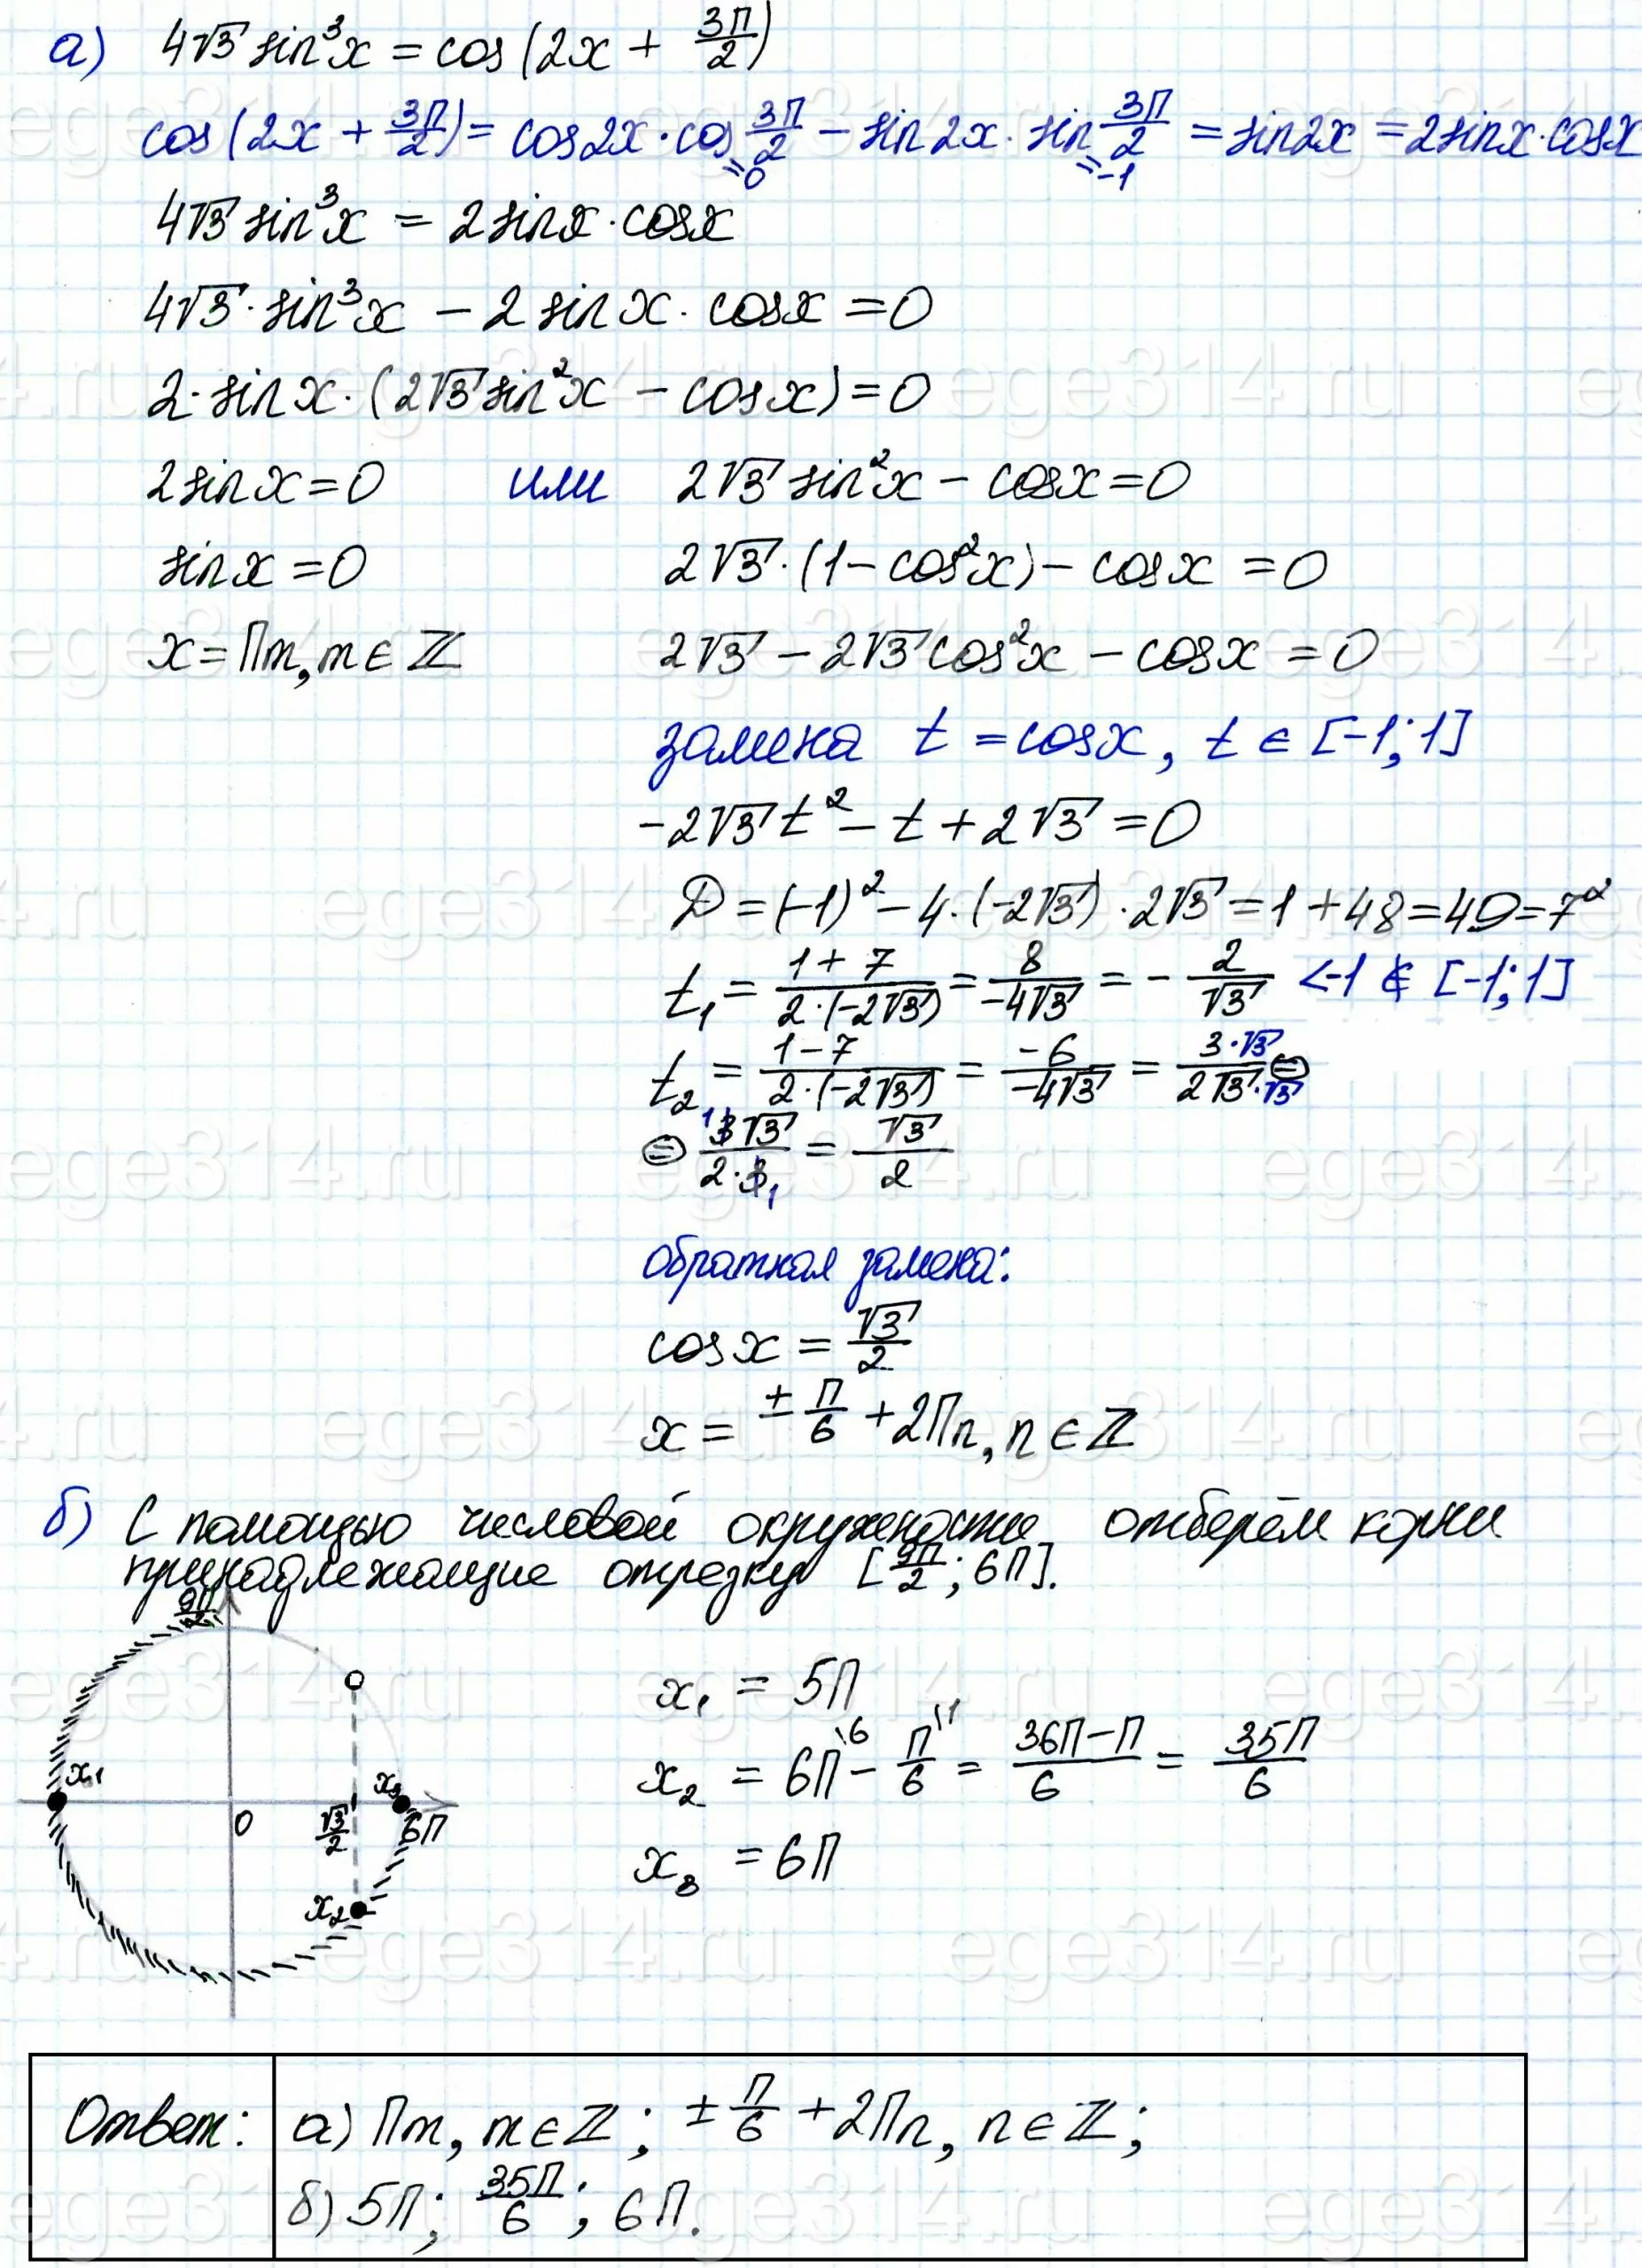 а) 4√3 sin³x = cos(2x + 3П/2)
cos(2x + 3П/2) = cos2x · cos 3П/2 − sin2x · sin 3П/2 = sin2x = 2sinx · cosx
=0 =-1
4√3 sin³x = 2sinx · cosx
4√3 · sin³x − 2 sinx · cosx = 0
2 · sinx · (2√3 sin²x − cosx) = 0
2sinx = 0 или 2√3 sin²x − cosx = 0
sinx = 0 2√3 · (1 − cos²x) − cosx = 0
x = Пm, m ∈ ℤ 2√3 − 2√3 cos²x − cosx = 0
замена t = cosx, t ∈ [-1; 1]
-2√3 t² − t + 2√3 = 0
D = (-1)² − 4 · (-2√3) · 2√3 = 1 + 48 = 49 = 7²
t₁ = (1 + 7)/(2 · (-2√3)) = 8/(-4√3) = - 2/√3 < -1 ∉ [-1; 1]
t₂ = (1 − 7)/(2 · (-2√3)) = -6/(-4√3) = (3 · √3)/(2√3 · √3) ⊜
⊜ 3√3/(2 · 3) = √3/2
1 1
обратная замена:
cosx = √3/2
x = ± П/6 + 2Пn, n ∈ ℤ
б) С помощью числовой окружности отберём корни
принадлежащие отрезку [9П/2; 6П].
9П/2
x₁ = 5П
x₂ = 6П\6 − П/6\1 = (36П − П)/6 = 35П/6
x₁ x₃
0 √3/2 6П
x₃ = 6П
x₂
Ответ: а) Пm, m ∈ ℤ; ± П/6 + 2Пn, n ∈ ℤ;
б) 5П; 35П/6; 6П.
ege314.ru